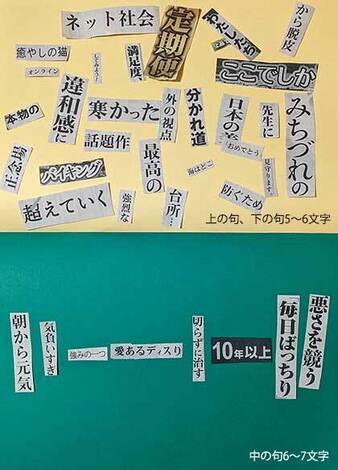 ネット社会
定期便
から脱皮
癒やしの猫
満足度
オンライン
ここでしか
違和感に
本物の
寒かった
外の視点
分かれ道
日本の
先生に
みちづれの
話題作
最高の
おめでとう
見守ります
バイキング
海はどこ
超えていく
強烈な
台所…
防ぐため
上の句、下の句5〜6文字
悪さを競う
毎日ばっちり
10年以上
切らずに治す
愛あるディスり
強みの一つ
気負いすぎ
朝から元気
中の句6〜7文字